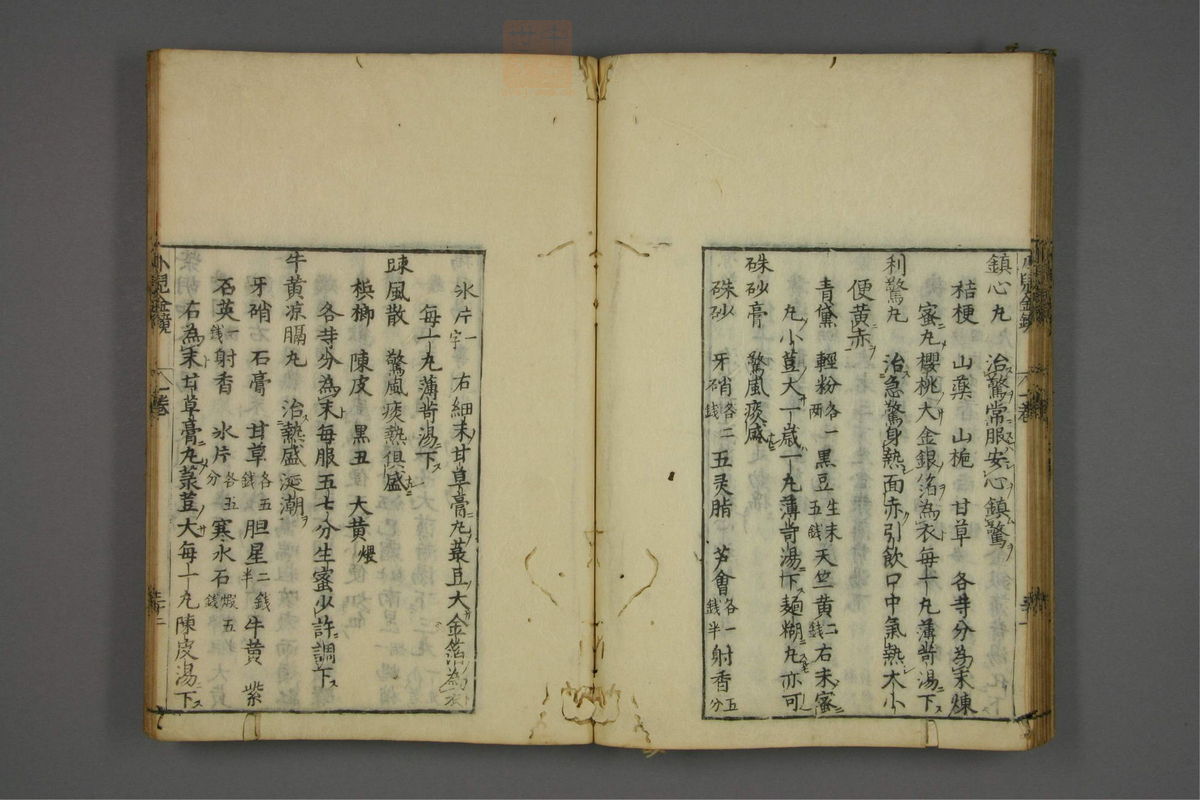 鎮心丸　治驚常服安心鎮驚
桔梗　山藥　山梔　甘草　各等分為末煉
蜜丸櫻桃大金銀箔為衣每一丸薄荷湯下
利驚丸　治急驚身熱面赤引飲口中氣熱大小
便黄赤
青黛　輕粉各一両　黒豆生末五錢　天竺黄二錢　右末蜜
丸小荳大一歳一丸薄荷湯下麺糊丸亦可
硃砂膏　驚風痰盛
硃砂　牙硝各二錢　五灵脂　芦會各一錢半　射香五分
氷片一字　右細末甘草膏丸菉豆大金箔為衣
每一丸薄荷湯下
踈風散　驚風痰熱俱盛
梹榔　陳皮　黒丑　大黄煨
各等分為末每服五七分生蜜少許調下
牛黄凉膈丸　治熱盛涎潮
牙硝　石膏　甘草各五錢　胆星二錢半　牛黄　紫
石英一錢　射香　氷片各五分　寒水石煅五錢
右為末甘草膏丸菉荳大每一丸陳皮湯下
小兒金鏡　一卷